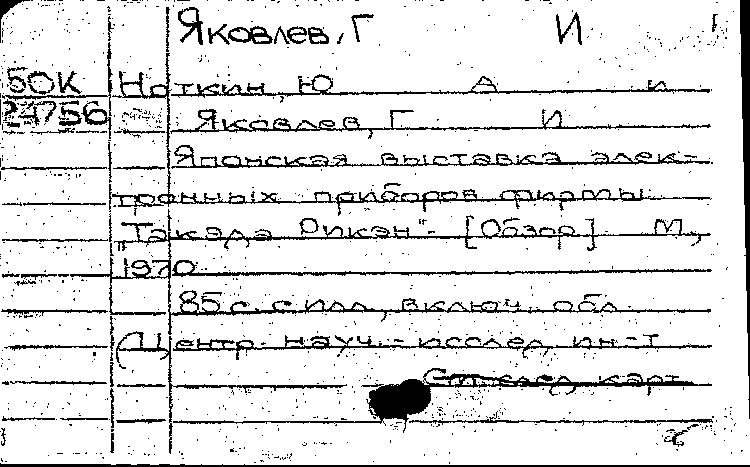 Яковлев, Г И
50К Ноткин, Ю А и
24756 Яковлев, Г И
Японская выставка элек-
тронных приборов фирмы
"Такеда Рикэн"- [Обзор] М.,
1970
85 с. с илл., включ. обл.
(Центр. науч.-исслед. ин-т
См след. карт.